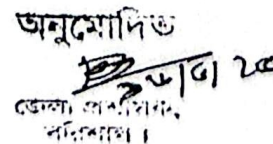 অনুমোদিত
জেলা প্রশাসক,
বরিশাল।